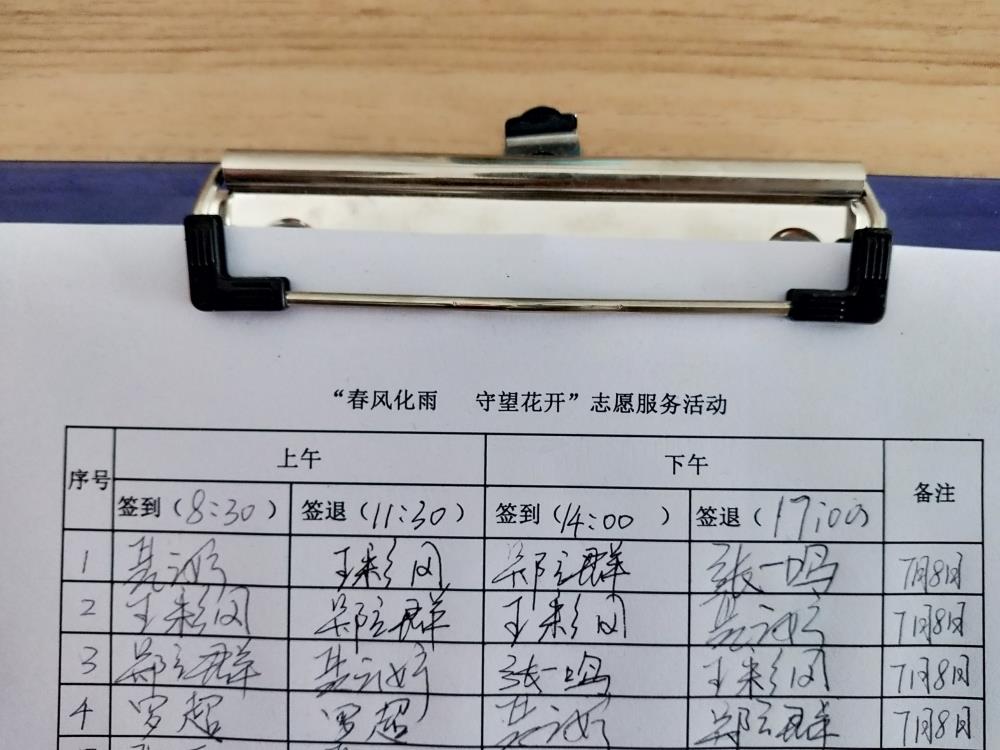 “春风化雨 守望花开”志愿服务活动
序号 上午 下午 备注
签到（8:30） 签退（11:30） 签到（14:00） 签退（17:00）
1 王彩凤 郑立群 张一鸣 7月8日
2 王彩凤 郑立群 王彩凤 7月8日
3 郑立群 张一鸣 王彩凤 7月8日
4 罗超 罗超 郑立群 7月8日